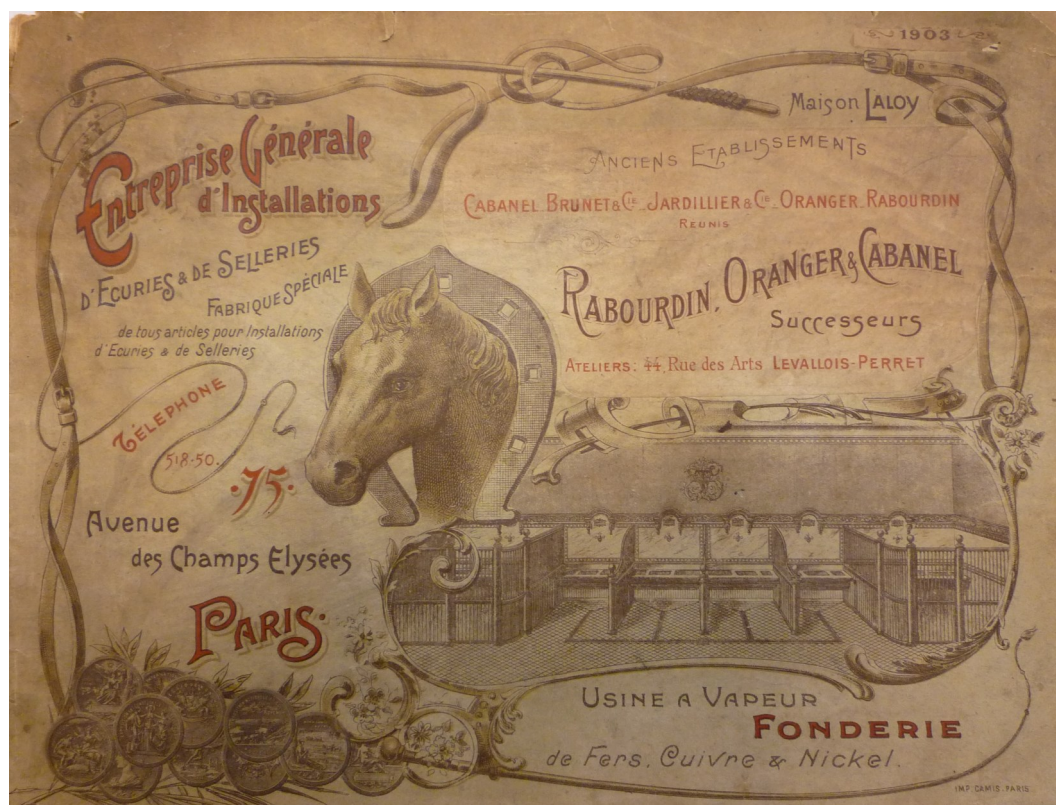 1903
Entreprise Générale
d'Installations
D'ECURIES & DE SELLERIES
FABRIQUE SPÉCIALE
de tous articles pour Installations
d'Ecuries & de Selleries
TÉLÉPHONE
518-50.
·75·
Avenue
des Champs Elysées
PARIS.
Maison LALOY
ANCIENS ETABLISSEMENTS
CABANEL_BRUNET & Cie_JARDILLIER & Cie_ORANGER_RABOURDIN
REUNIS
RABOURDIN, ORANGER & CABANEL
Successeurs
ATELIERS: 44, Rue des Arts LEVALLOIS-PERRET
USINE A VAPEUR
FONDERIE
de Fers, Cuivre & Nickel.
IMP. CAMIS. PARIS.